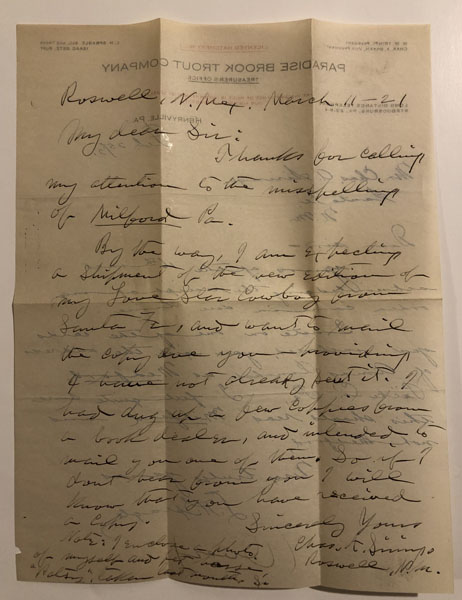 PARADISE BROOK TROUT COMPANY
TREASURER'S OFFICE
HENRYVILLE, PA.
Roswell, N. Mex. March 11-21
My dear Sir:
Thanks for calling
my attention to the misspelling
of Milford Pa.
By the way, I am expecting
a shipment of the new edition of
my Lone Star Cowboy from
Santa Fe, and want to mail
the copy you – providing
I have not already sent it. I
had dug up a few coppies from
a book dealer, and intended to
mail you one of them. So if I
dont hear from you I will
know that you have received
a copy.
Sincerely Yours
Chas. A. Siringo
Roswell, N.M.
Note: I enclose a photo
of myself and horse
"Patsy", taken months